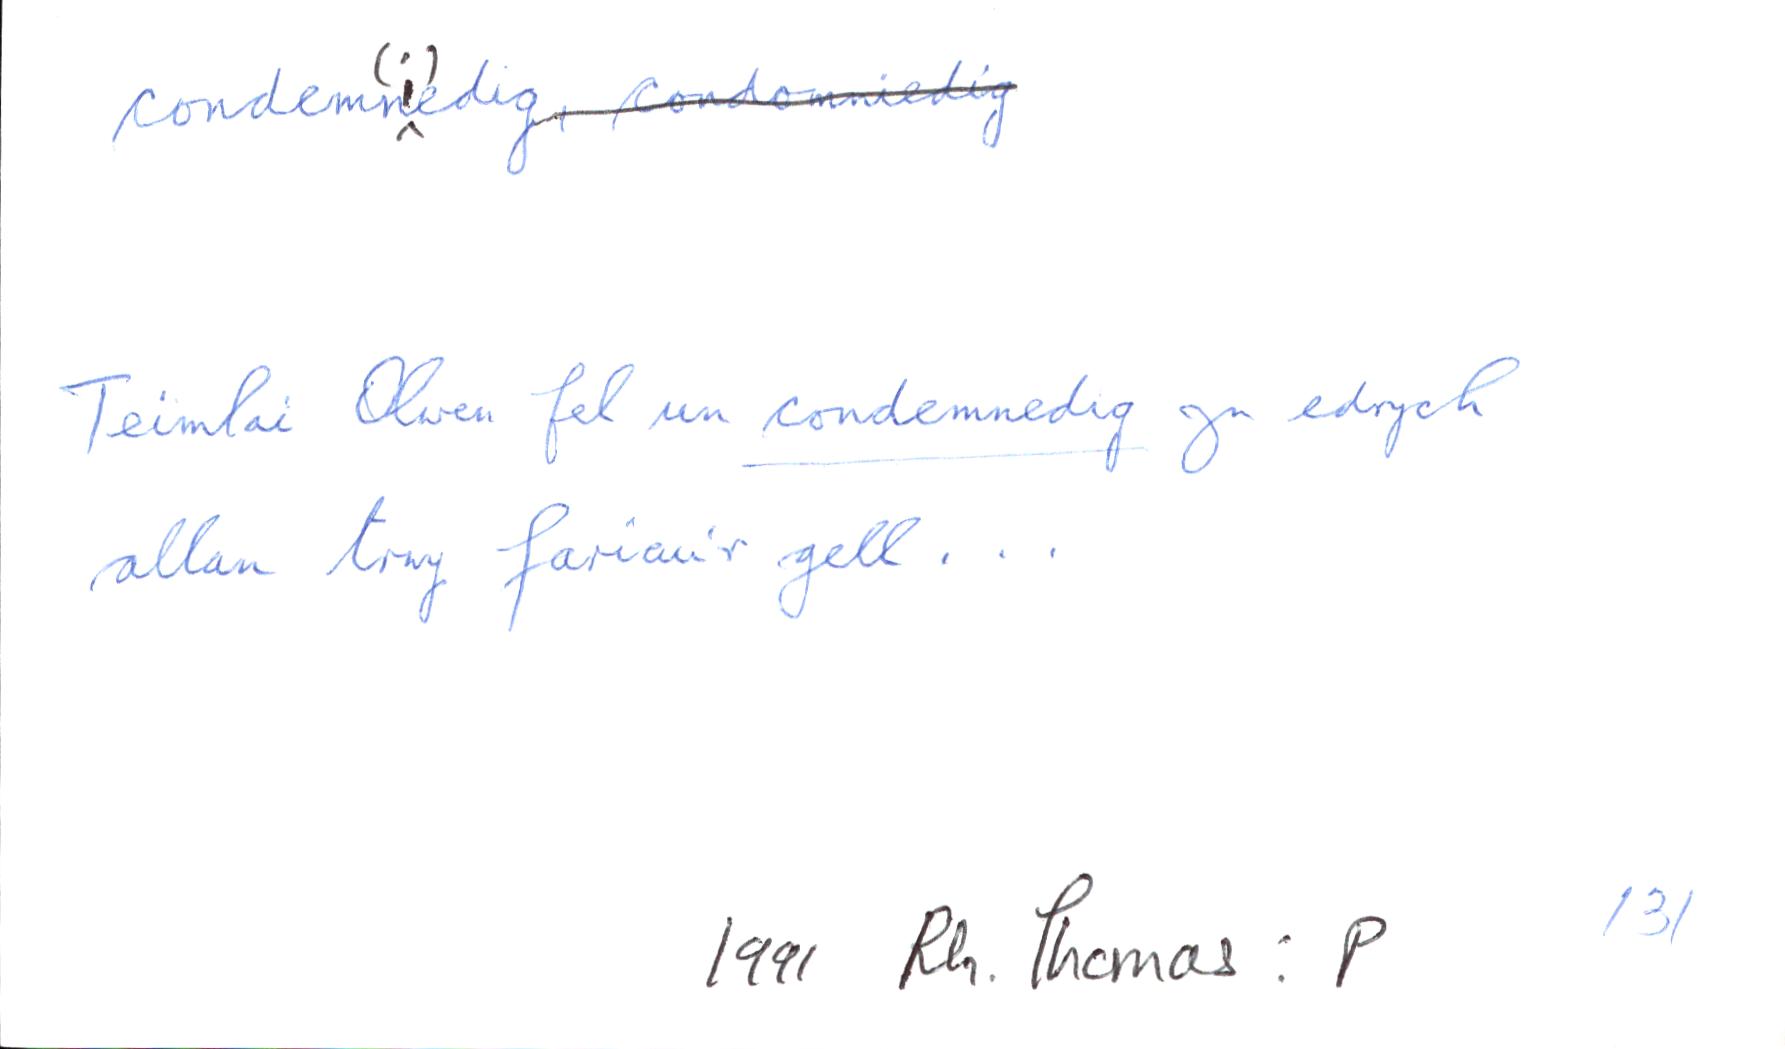 condemn(i)edig, condomniedig
Teimlai Olwen fel un condemnedig yn edrych
allan trwy fariau'r gell . . .
1991 Rh. Thomas : P 131